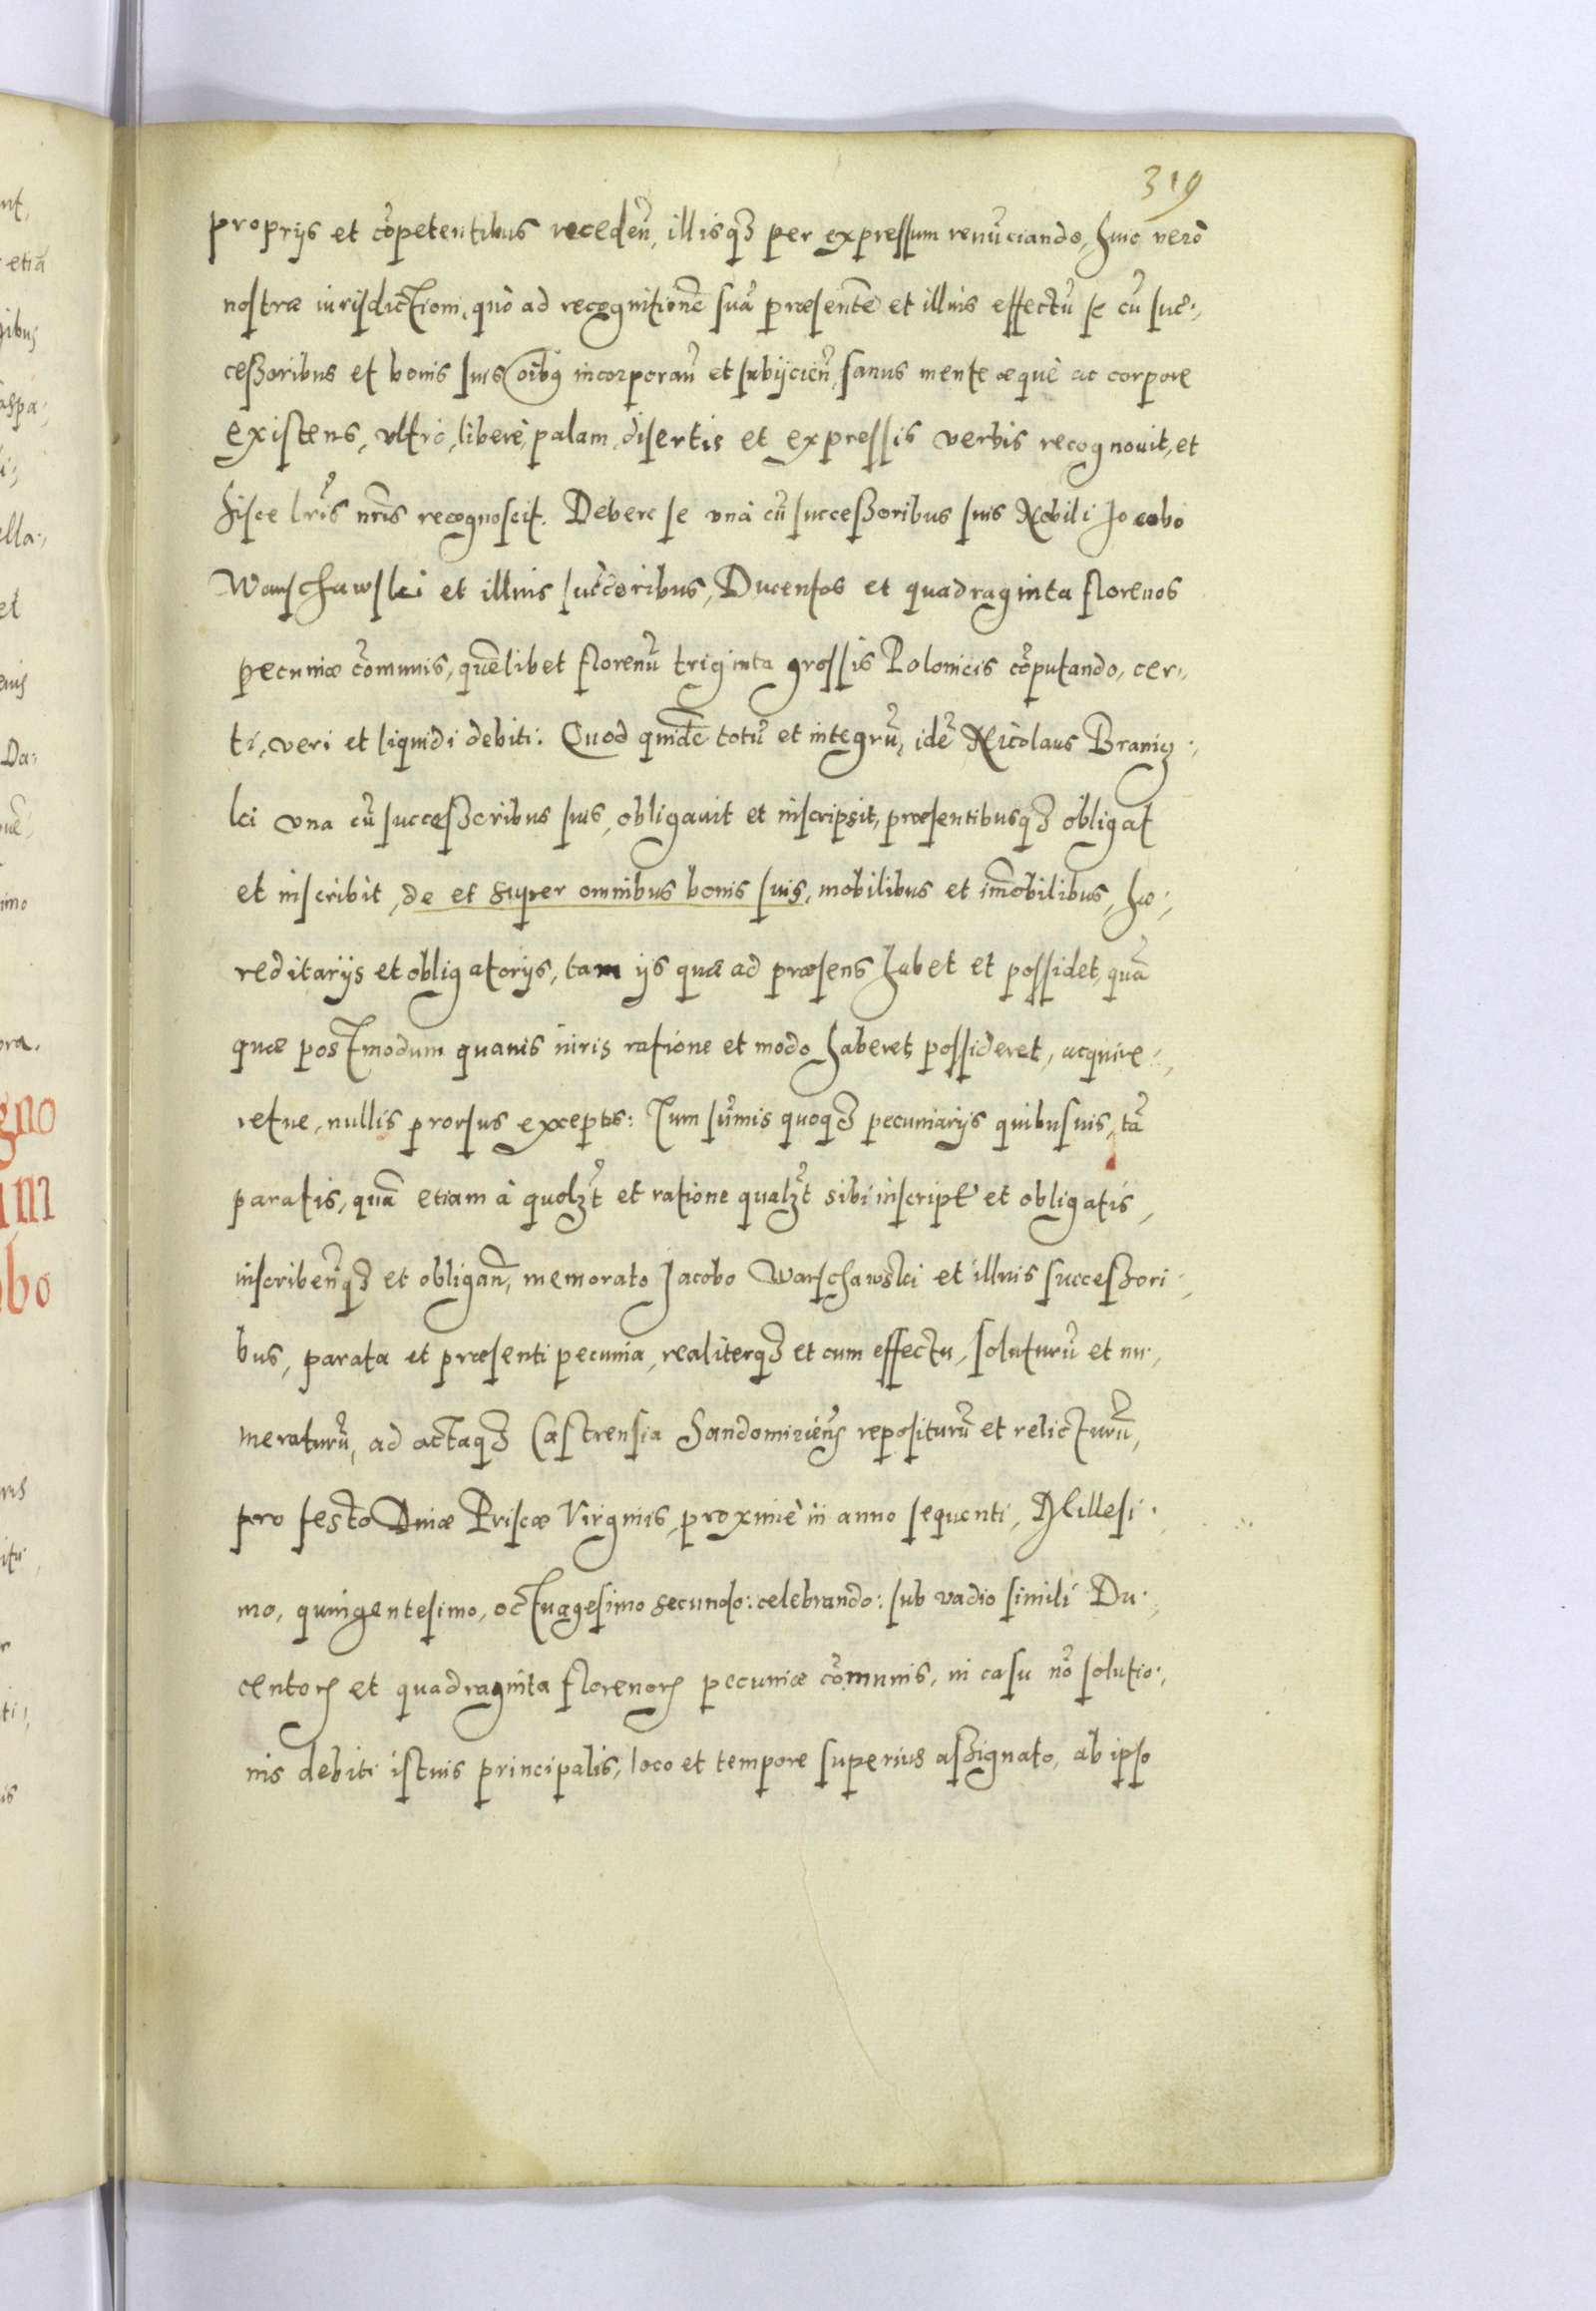 319
proprijs et cõpetentibus receden̄, illisq₃ per expressum renũciando, huic verò
nostræ iurisdictioni, quò ad recognitionẽ suã præsentẽ et illius effectũ se cũ suc-
ceßoribus et bonis suis oĩbꝰ incorporan̄ et subijcien̄, sanus mente æquè ac corpore
existens, vltrò, liberè, palam, disertis et expressis verbis recognouit, et
hisce lr̃is nr̃is recognoscit. Debere se vnà cũ succeßoribus suis Nobili Jacobo
Warschawski et illius succ̃oribus, Ducentos et quadraginta florenos
pecuniæ cõmunis, quẽlibet florenũ triginta grossis Polonicis cõputando, cer-
ti, veri et liquidi debiti. Quod quidẽ totũ et integrũ, idẽ Nicolaus Branicz-
ki vna cũ succeßoribus suis, obligauit et inscripsit, præsentibusq₃ obligat
et inscribit, de et super omnibus bonis suis, mobilibus et im̃obilibus, hæ-
reditarijs et obligatorijs, tam ijs quæ ad præsens habet et possidet, quã
quæ postmodum quauis iuris ratione et modo haberet, possideret, acquire-
retue, nullis prorsus exceptis: Tum sũmis quoq₃ pecuniarijs quibusuis, tã
paratis, quã etiam à quolꝫt et ratione qualꝫt sibi inscript̃ et obligatis,
inscriben̄q₃ et obligan̄, memorato Jacobo Warschawski et illius succeßori-
bus, parata et præsenti pecunia, realiterq₃ et cum effectu, soluturũ et nu-
meraturũ, ad actaq₃ Castrensia Sandomirien̄s repositurũ et relicturũ,
pro festo Diuæ Priscæ Virginis, proximè in anno sequenti, Millesi-
mo, quingentesimo, octuagesimo secundo: celebrando: sub vadio simili Du-
centoꝝ et quadraginta florenoꝝ pecuniæ cõmunis, in casu nõ solutio-
nis debiti istius principalis, loco et tempore superius aßignato, ab ipso